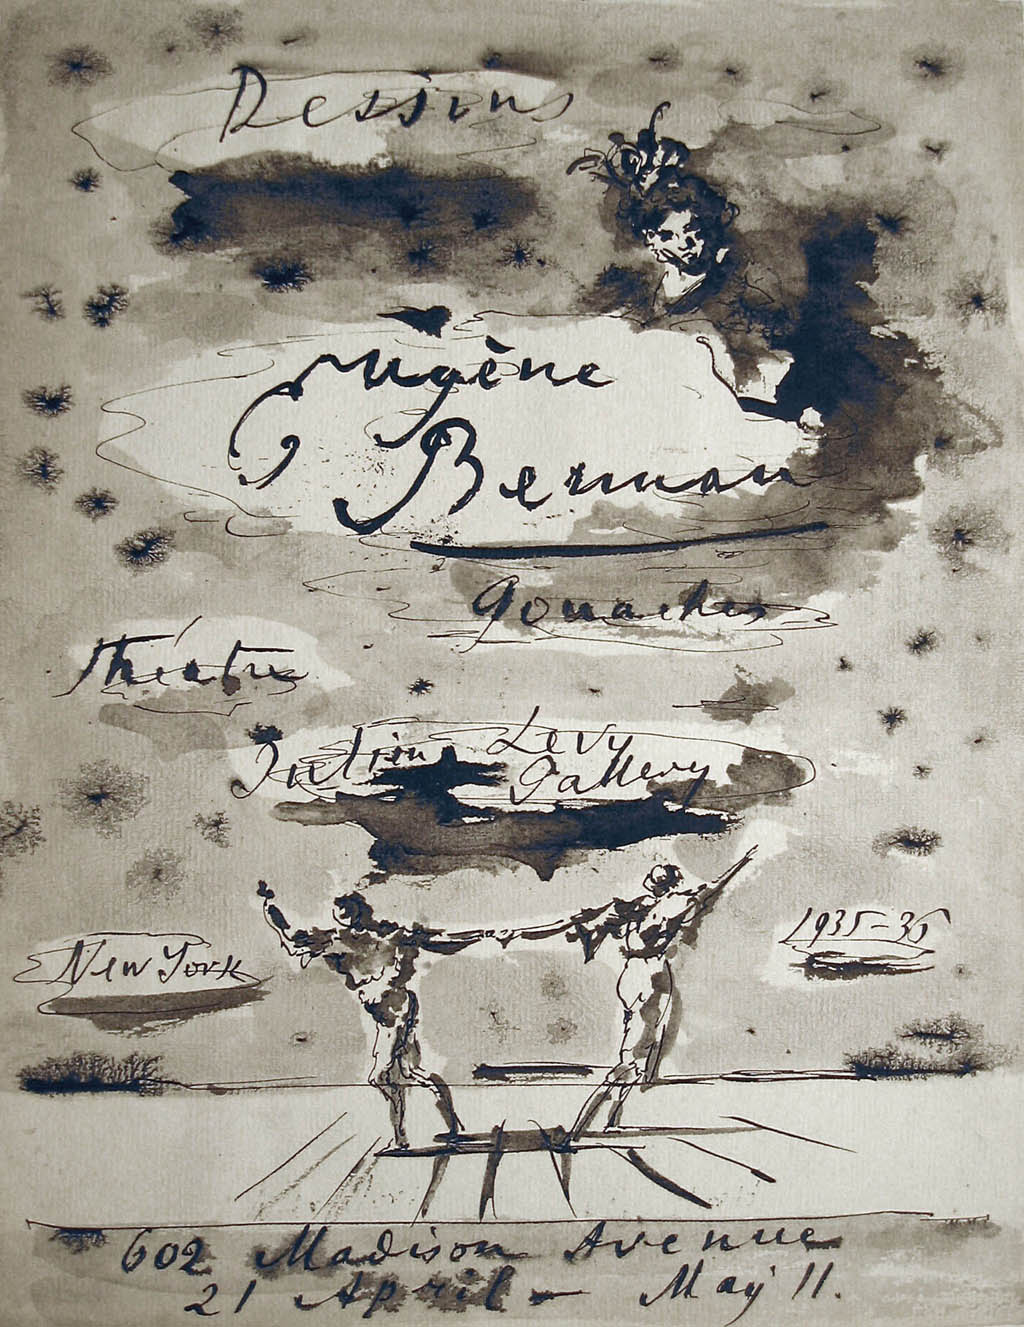 Dessins
Eugène
Berman
gouaches
théatre
Julien Levy
Gallery
New York
1935-36
602 Madison Avenue
21 April - May 11.